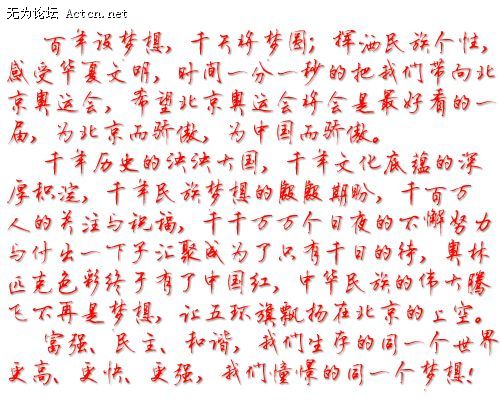 无为论坛 Actcn.net
百年设梦想，千天将梦圆；挥洒民族个性，
感受华夏文明，时间一分一秒的把我们带向北
京奥运会，希望北京奥运会将会是最好看的一
届，为北京而骄傲，为中国而骄傲。
千年历史的泱泱大国，千年文化底蕴的深
厚积淀，千年民族梦想的殷殷期盼，千百万
人的关注与祝福，千千万万个日夜的不懈努力
与付出一下子汇聚成为了只有千日的待，奥林
匹克色彩终于有了中国红，中华民族的伟大腾
飞不再是梦想，让五环旗飘扬在北京的上空。
富强、民主、和谐，我们生存的同一个世界
更高、更快、更强，我们憧憬的同一个梦想！